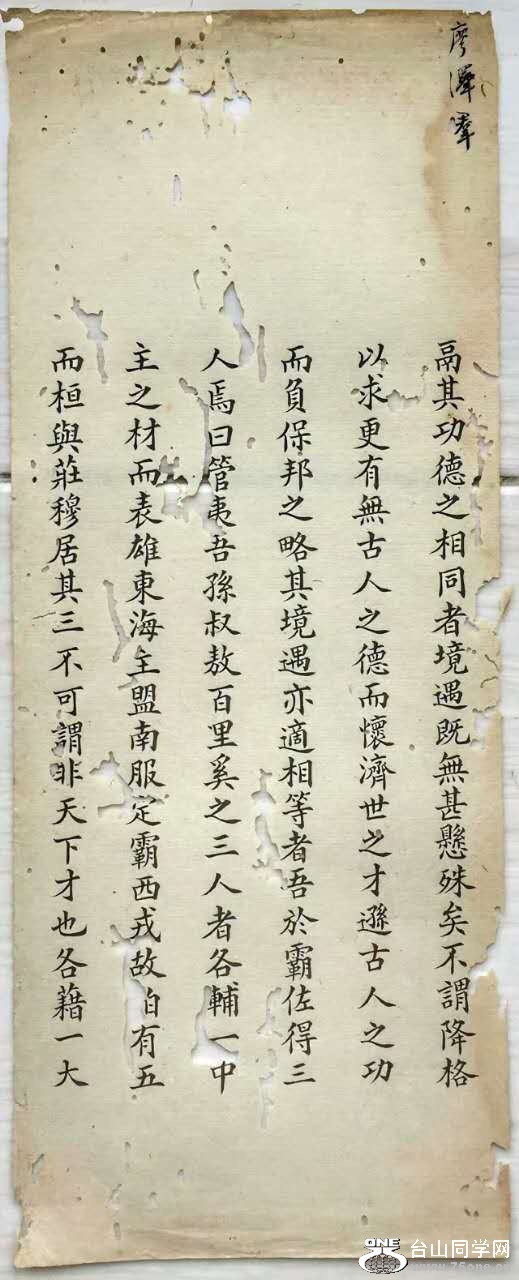 廖澤羣
鬲其功德之相同者境遇既無甚懸殊矣不謂降格
以求更有無古人之德而懷濟世之才遜古人之功
而負保邦之略其境遇亦適相等者吾於霸佐得三
人焉曰管夷吾孫叔敖百里奚之三人者各輔一中
主之材而表雄東海主盟南服定霸西戎故伯有五
而桓與莊穆居其三不可謂非天下才也各藉一大
ONE
台山同学网
www.75one.com